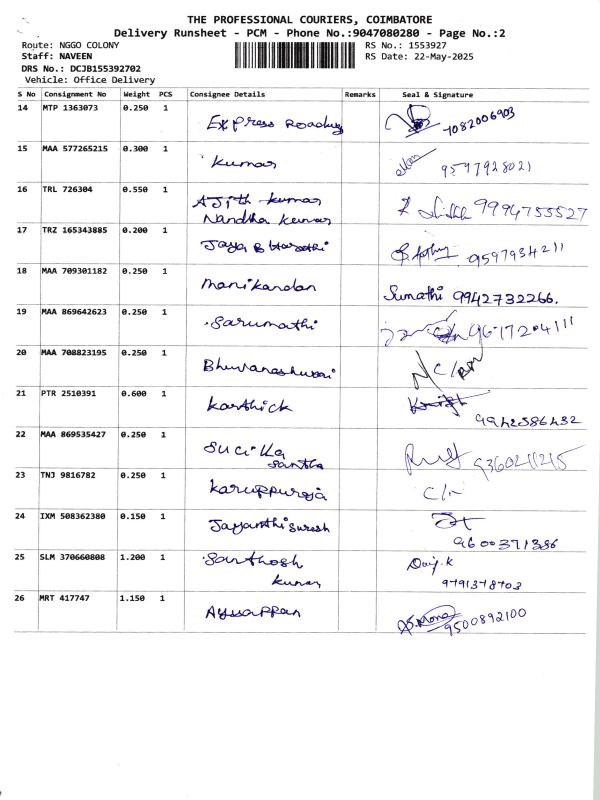 THE PROFESSIONAL COURIERS, COIMBATORE
Delivery Runsheet - PCM - Phone No.:9047080280 - Page No.:2
Route: NGGO COLONY RS No.: 1553927
Staff: NAVEEN RS Date: 22-May-2025
DRS No.: DCJB155392702
Vehicle: Office Delivery
S No Consignment No Weight PCS Consignee Details Remarks Seal & Signature
14 MTP 1363073 0.250 1 Express Roadways 7082006903
15 MAA 577265215 0.300 1 Kumar 9597928021
16 TRL 726304 0.550 1 Ajith kumar
Nandha kumar 9994755527
17 TRZ 165343885 0.200 1 Jaya Bharathi 9597934211
18 MAA 709301182 0.250 1 manikandan Sumathi 9942732266.
19 MAA 869642623 0.250 1 Sarumathi 9617204111
20 MAA 708823195 0.250 1 Bhuvaneshwari N/C/RM
21 PTR 2510391 0.600 1 Karthick
9942586432
22 MAA 869535427 0.250 1 Sucilla
Santha 9360211215
23 TNJ 9816782 0.250 1 Karuppuraja C/n
24 IXM 508362380 0.150 1 Jayanthi Suresh
9600371386
25 SLM 370660808 1.200 1 Santhosh
kumar 9791378703
26 MRT 417747 1.150 1 Ayyappan
9500892100